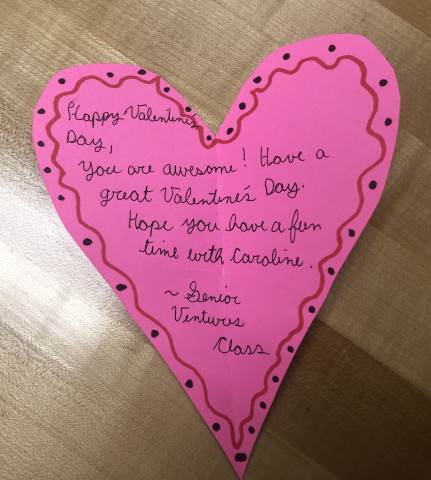 Happy Valentine's
Day,
You are awesome! Have a
great Valentine's Day.
Hope you have a fun
time with Caroline.
~ Senior
Ventures
Class